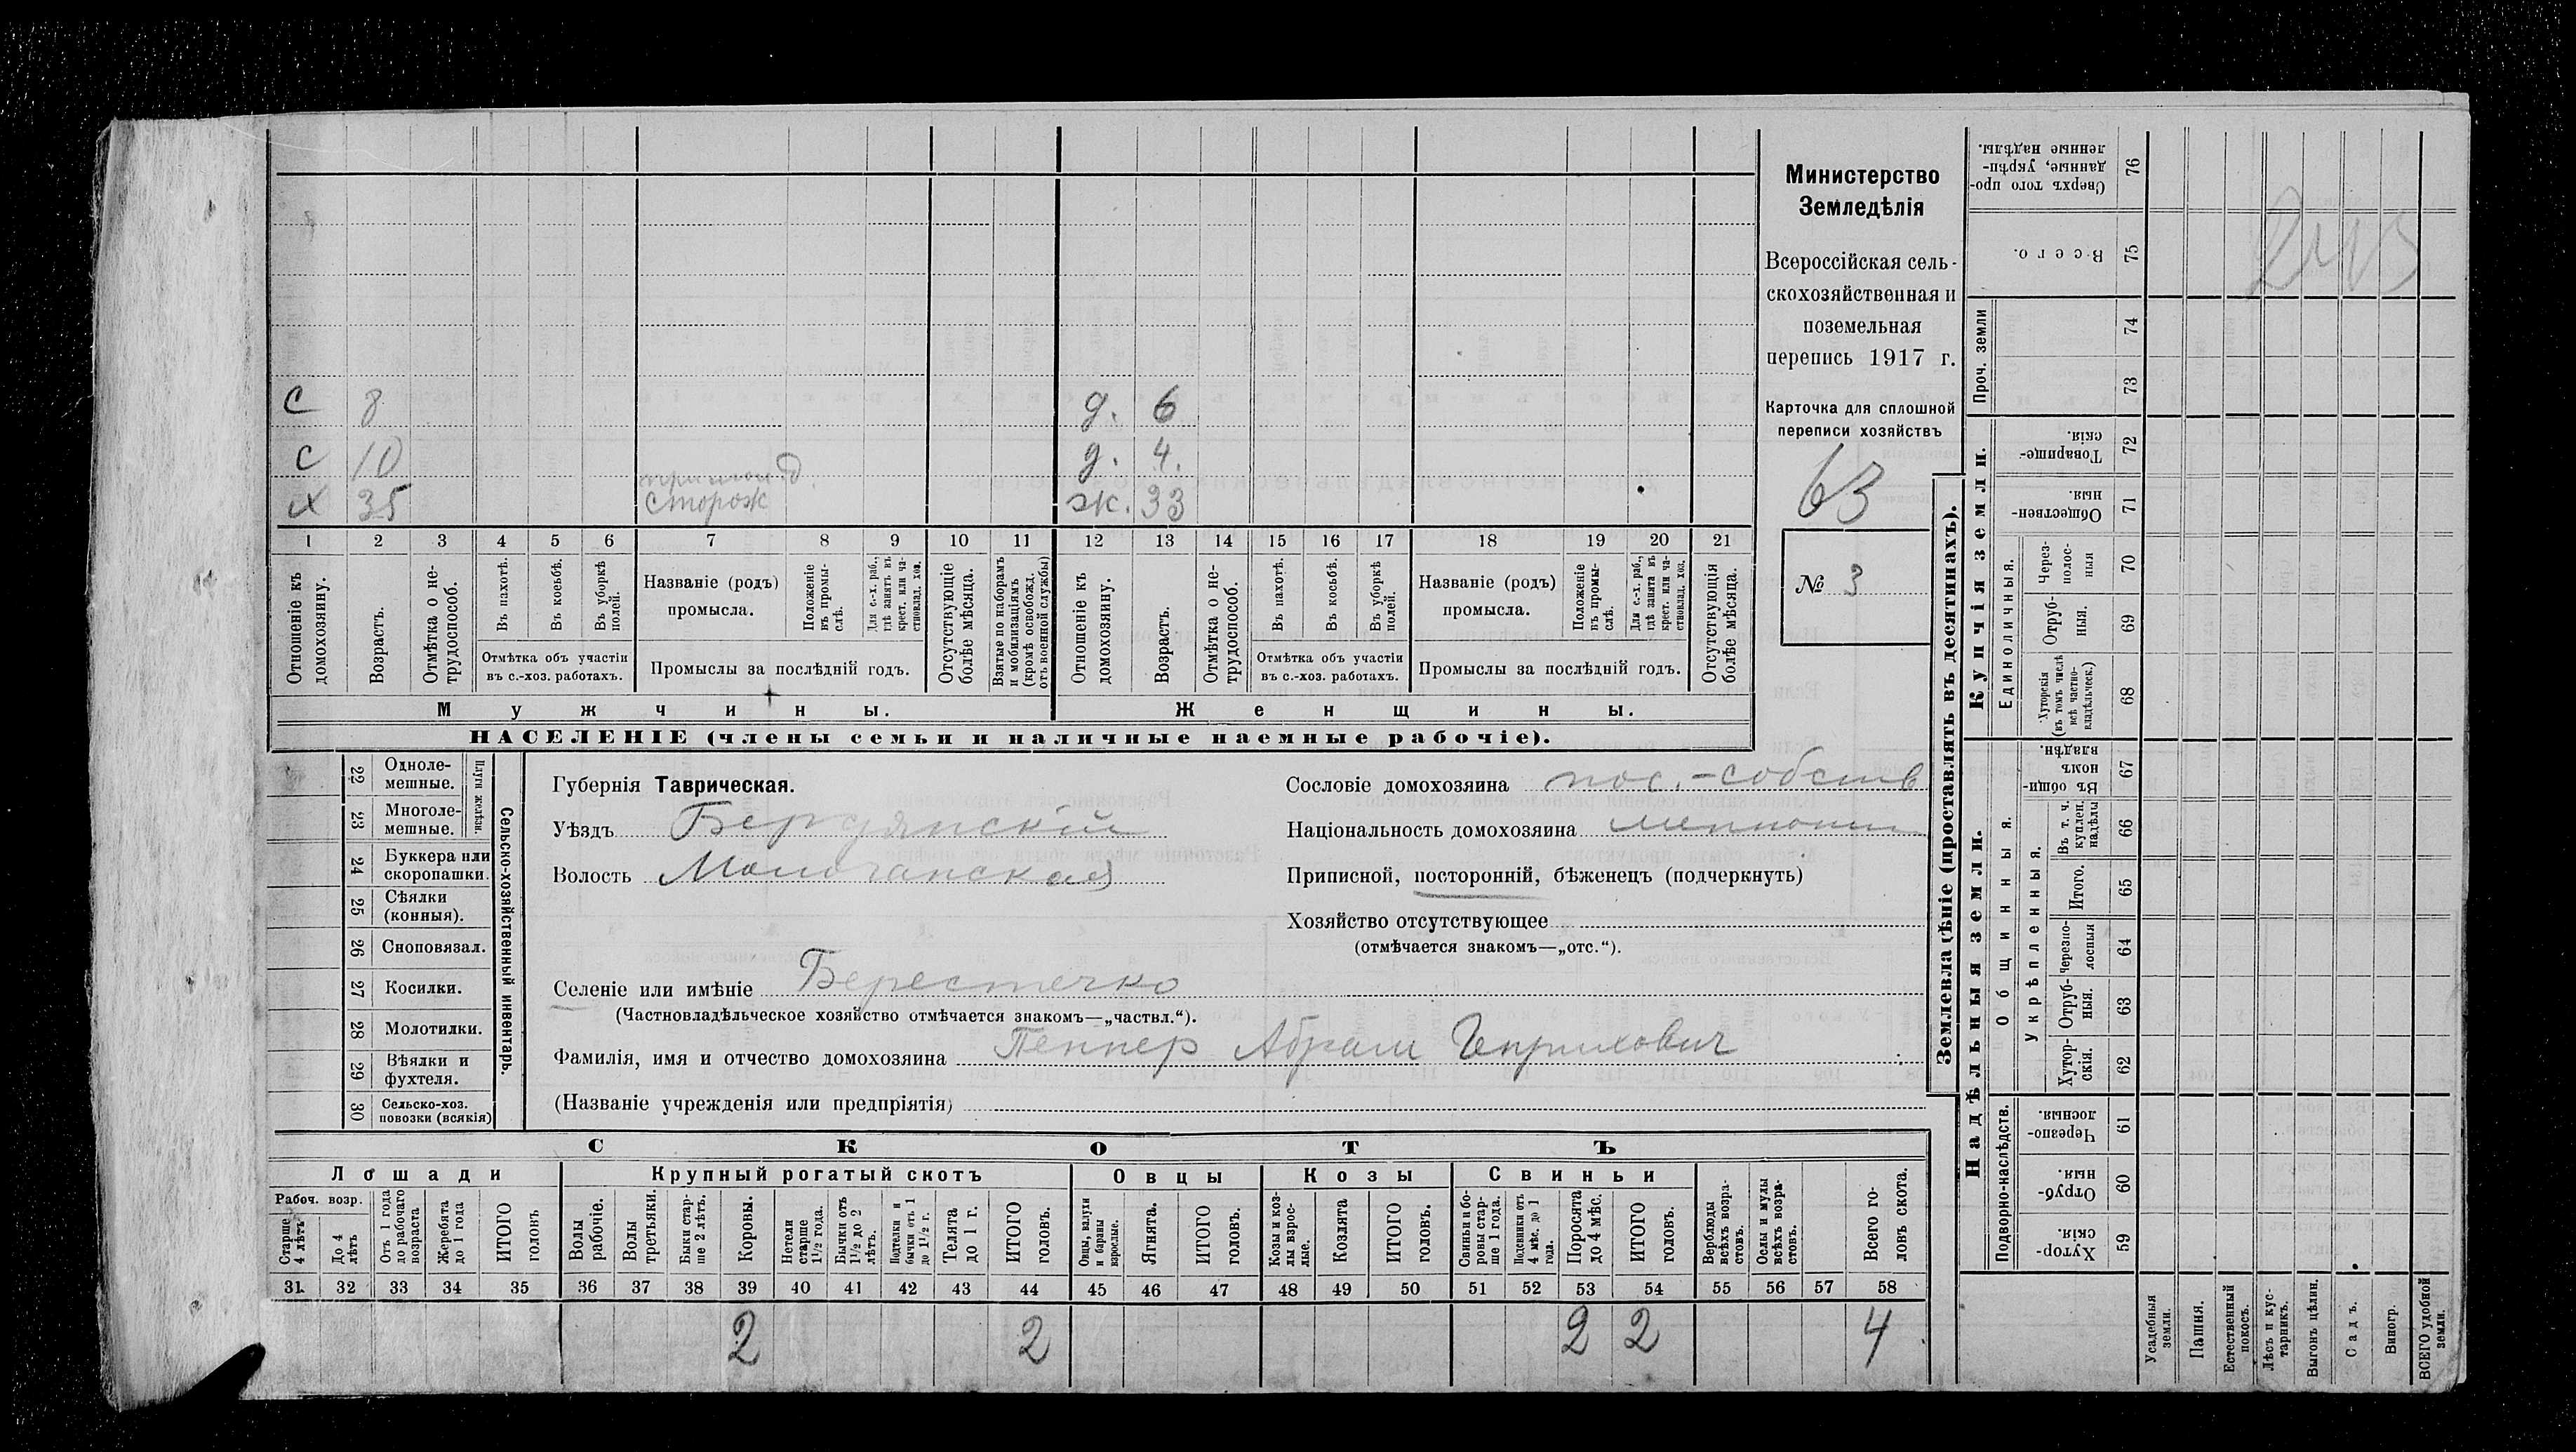 С 8 д. 6
С 10 д. 4.
Х 35 сторож ж. 33
1 2 3 4 5 6 7 8 9 10 11 12 13 14 15 16 17 18 19 20 21
Отношеніе къ домохозяину.
Возрастъ.
Отмѣтка о не-трудоспособ.
Въ пахотѣ.
Въ косьбѣ.
Въ уборкѣ полей.
Отмѣтка объ участіи
въ с.-хоз. работахъ.
Названіе (родъ)
промысла.
Положеніе въ промы-слѣ.
Для с.-х. раб., гдѣ занятъ въ крест. или ча-стновлад. хоз.
Промыслы за послѣдній годъ.
Отсутствующіе болѣе мѣсяца.
Взятые по наборамъ и мобилизаціямъ (кромѣ освобожд. отъ военной службы)
Отношеніе къ домохозяину.
Возрастъ.
Отмѣтка о не-трудоспособ.
Въ пахотѣ.
Въ косьбѣ.
Въ уборкѣ полей.
Отмѣтка объ участіи
въ с.-хоз. работахъ.
Названіе (родъ)
промысла.
Положеніе въ промы-слѣ.
Для с.-х. раб., гдѣ занята въ крест. или ча-стновлад. хоз.
Промыслы за послѣдній годъ.
Отсутствующія болѣе мѣсяца.
Мужчины.
Женщины.
НАСЕЛЕНІЕ (члены семьи и наличные наемные рабочіе).
Министерство
Земледѣлія
Всероссійская сель-
скохозяйственная и
поземельная
перепись 1917 г.
Карточка для сплошной
переписи хозяйствъ
63
№ 3
22 Одноле-мешные.
23 Многоле-мешные.
Плуги желѣзн.
24 Буккера или скоропашки.
25 Сѣялки (конныя).
26 Сноповязал.
27 Косилки.
28 Молотилки.
29 Вѣялки и фухтеля.
30 Сельско-хоз. повозки (всякія)
Сельско-хозяйственный инвентарь.
Губернія Таврическая.
Уѣздъ Бердянскій
Волость Молочанская
Селеніе или имѣніе Берестечко
(Частновладѣльческое хозяйство отмѣчается знакомъ—„частвл.“).
Фамилія, имя и отчество домохозяина Пеннер Абрам Генрихович
(Названіе учрежденія или предпріятія)
Сословіе домохозяина пос.-собств
Національность домохозяина меннонит
Приписной, посторонній, бѣженецъ (подчеркнуть)
Хозяйство отсутствующее
(отмѣчается знакомъ—„отс.“).
СКОТЪ
Лошади
Рабоч. возр.
Старше 4 лѣтъ
До 4 лѣтъ
Отъ 1 года до рабочаго возраста
Жеребята до 1 года
ИТОГО головъ
Крупный рогатый скотъ
Волы рабочіе.
Волы третьяки.
Быки стар-ше 2 лѣтъ.
Коровы.
Нетели старше 1½ года.
Бычки отъ 1½ до 2 лѣтъ.
Подтелки и бычки отъ 1 до 1½ г.
Телята до 1 г.
ИТОГО головъ.
Овцы
Овцы, валухи и бараны взрослые.
Ягнята.
ИТОГО головъ.
Козы
Козы и коз-лы взрос-лые.
Козлята
ИТОГО головъ.
Свиньи
Свиньи и бо-ровы стар-ше 1 года.
Подсвинки отъ 4 мѣс. до 1 года.
Поросята до 4 мѣс.
ИТОГО головъ.
Верблюды всѣхъ возра-стовъ.
Ослы и мулы всѣхъ возра-стовъ.
Всего го-ловъ скота.
31 32 33 34 35 36 37 38 39 40 41 42 43 44 45 46 47 48 49 50 51 52 53 54 55 56 57 58
2 2 2 2 4
Землевладѣніе (проставлять въ десятинахъ).
Купчія земли.
Надѣльныя земли.
Сверхъ того про-данные, укрѣп-ленные надѣлы. 76
Всего. 75
Проч. земли
74
73
Товарище-скія. 72
Обществен-ныя. 71
Единоличныя.
Через-полос-ныя 70
Отруб-ныя. 69
Хуторскія (въ томъ числѣ всѣ частно-владѣльческ.) 68
Общинныя.
Въ общин-номъ владѣн. 67
Укрѣпленныя.
Въ т. ч. куплен. надѣлы 66
Итого. 65
Черезпо-лосныя 64
Отруб-ныя. 63
Хутор-скія. 62
Подворно-наслѣдств.
Черезпо-лосныя. 61
Отруб-ныя. 60
Хутор-скія. 59
Усадебныя земли.
Пашня.
Естественный покосъ.
Лѣсъ и кус-тарникъ.
Выгонъ цѣлин.
Садъ.
Виногр.
ВСЕГО удобной земли.